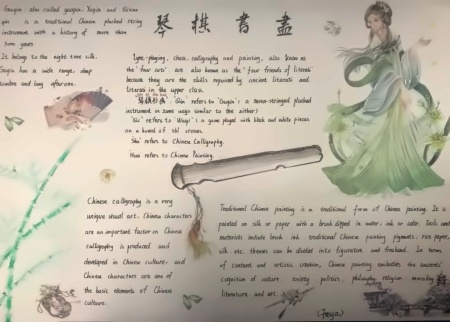 Guqin, also called yaoqin, Yuqin and Qixian
qin is a traditional Chinese plucked string
instrument with a history of more than
years
It belongs to the eight tone silk.
Guqin has a wide range, deep
timbre and long aftertone.
琴棋書畫
Lyre-playing, chess, calligraphy and painting, also known as
the "four arts" are also known as the "four friends of literati"
because they are the skills required by ancient literati and
literati in the upper class.
"Qin" refers to "Guqin": a seven-stringed plucked
instrument in some ways similar to the zither)
"Qi" refers to "Weiqi" is a game played with black and white pieces
on a board of 361 crosses.
Shu refers to Chinese Calligraphy.
Hua refers to Chinese Painting.
Chinese calligraphy is a very
unique visual art. Chinese characters
are an important factor in Chinese
calligraphy is produced and
developed in Chinese culture. and
Chinese characters are one of
the basic elements of Chinese
culture.
Traditional Chinese painting is a traditional form of Chinese painting. It is
painted on silk or paper with a brush dipped in water, ink or color. Tools and
materials include brush ink traditional Chinese painting pigments, rice paper,
silk etc. themes can be divided into figuration and freehand. In terms
of content and artistic creation, Chinese painting embodies the ancients'
cognition of nature society politics, philosophy religion morality
literature and art.